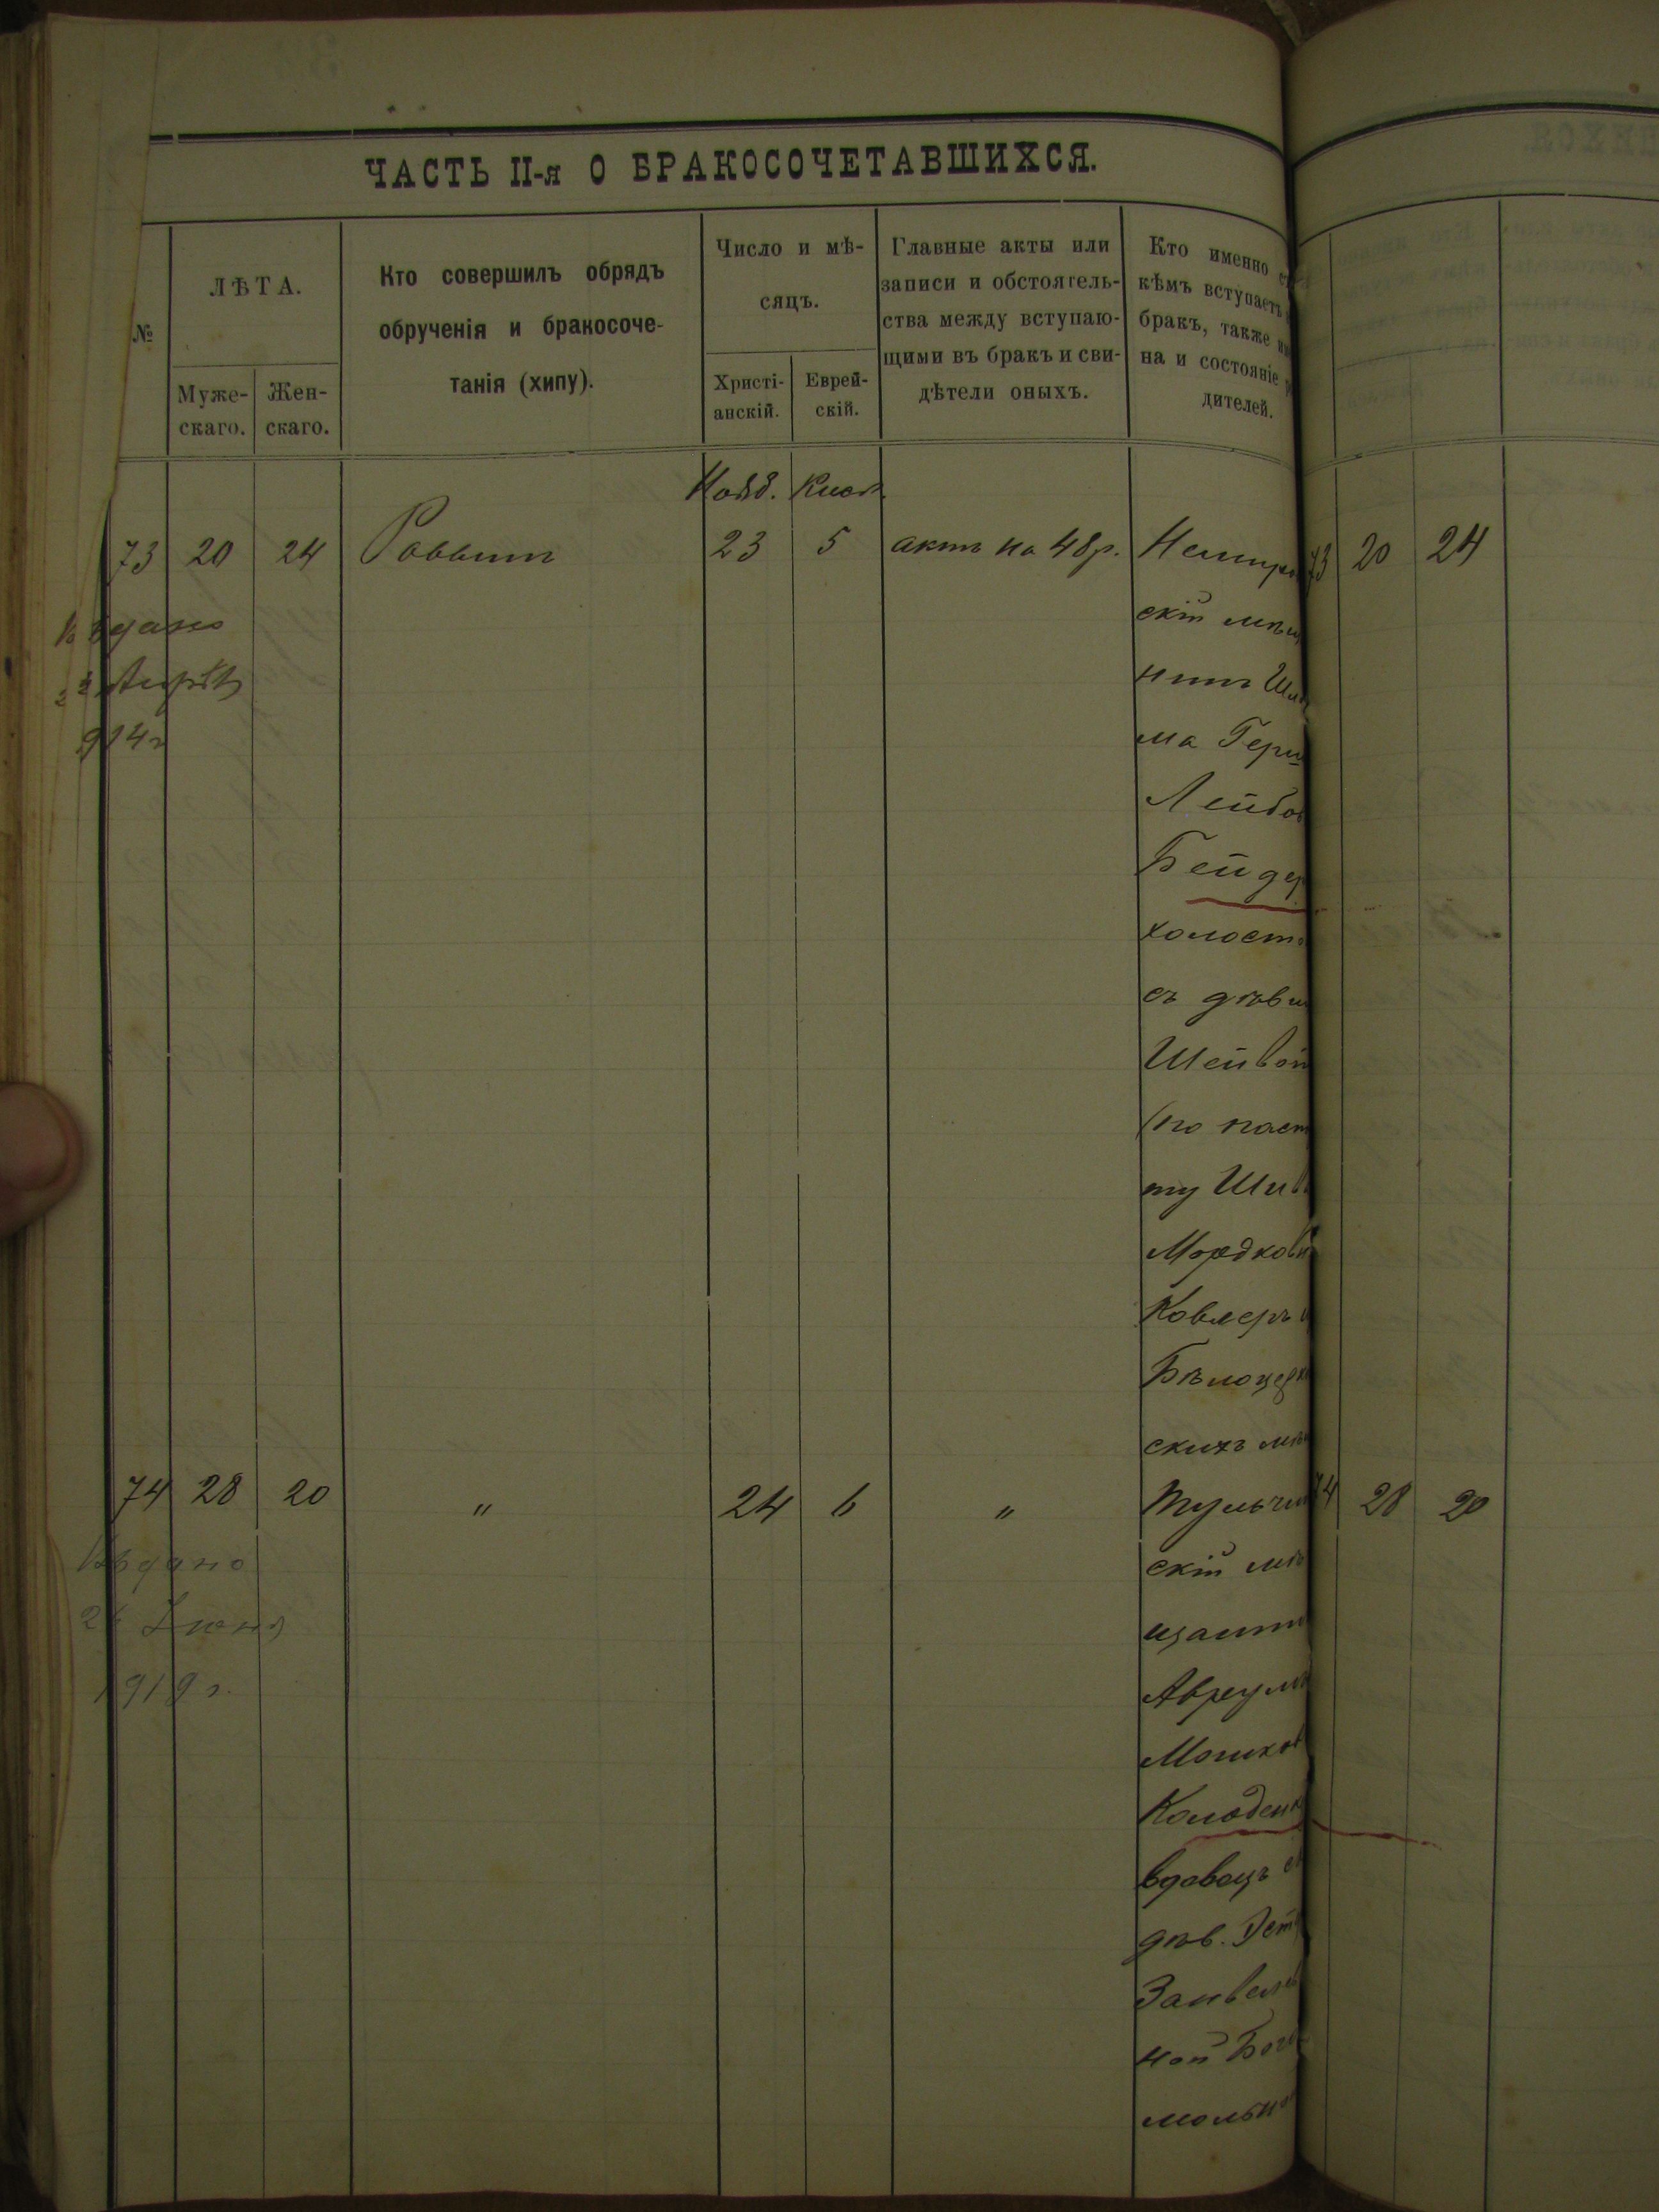 ЧАСТЬ II-я О БРАКОСОЧЕТАВШИХСЯ.
№
ЛѢТА.
Муже-
скаго.
Жен-
скаго.
Кто совершилъ обрядъ
обрученія и бракосоче-
танія (хипу).
Число и мѣ-
сяцъ.
Христі-
анскій.
Еврей-
скій.
Главные акты или
записи и обстоятель-
ства между вступаю-
щими въ бракъ и сви-
дѣтели оныхъ.
Кто именно
кѣмъ вступаетъ
бракъ, также
на и состояніе
дителей.
Нояб. Кисл.
73 20 24 Раввинъ 23 5 актъ на 48 р. Немиро
скій мѣщ
нинъ Шл
ма Герш
Лейбов
Бейдер
холост
съ дѣви
Шейвой
(по пасп
ту Шив
Мордков
Ковлеръ
Бѣлоцерк
скихъ мѣ
Выдано
914 г
74 28 20 " 24 6 " Тульчин
скій мѣ
щанин
Аврум
Мошков
Колоден
вдовецъ
дѣв. Эст
Занвел
ной Бого
мольн
Выдано
Іюня
1919 г.
73 20 24
74 28 20